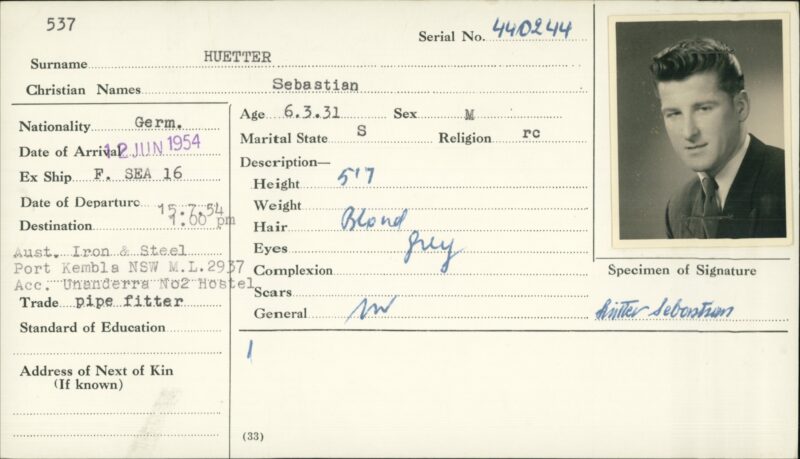 537
Serial No. 440244
Surname HUETTER
Christian Names Sebastian
Nationality Germ.
Date of Arrival 12 JUN 1954
Ex Ship F. SEA 16
Date of Departure 15.7.54
Destination 1.00 pm
Aust. Iron & Steel
Port Kembla NSW M.L.2937
Acc. Unanderra No2 Hostel
Trade pipe fitter
Standard of Education
Address of Next of Kin
(If known)
Age 6.3.31 Sex M
Marital State S Religion rc
Description—
Height 5'7
Weight
Hair Blond
Eyes grey
Complexion
Scars
General
Specimen of Signature
Sebastian
1
(33)